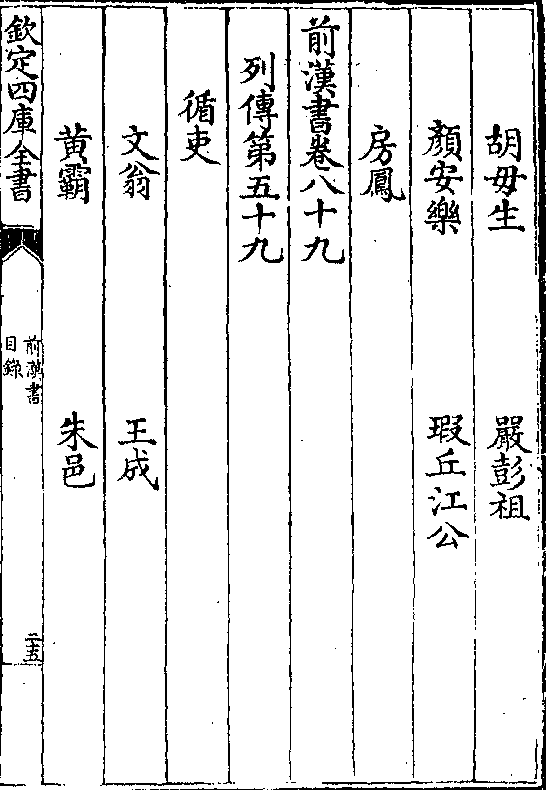 胡毋生　嚴彭祖
顏安樂　瑕丘江公
房鳳
前漢書卷八十九
列傳第五十九
循吏
文翁　王成
黃霸　朱邑
欽定四庫全書
前漢書
目錄
二十五